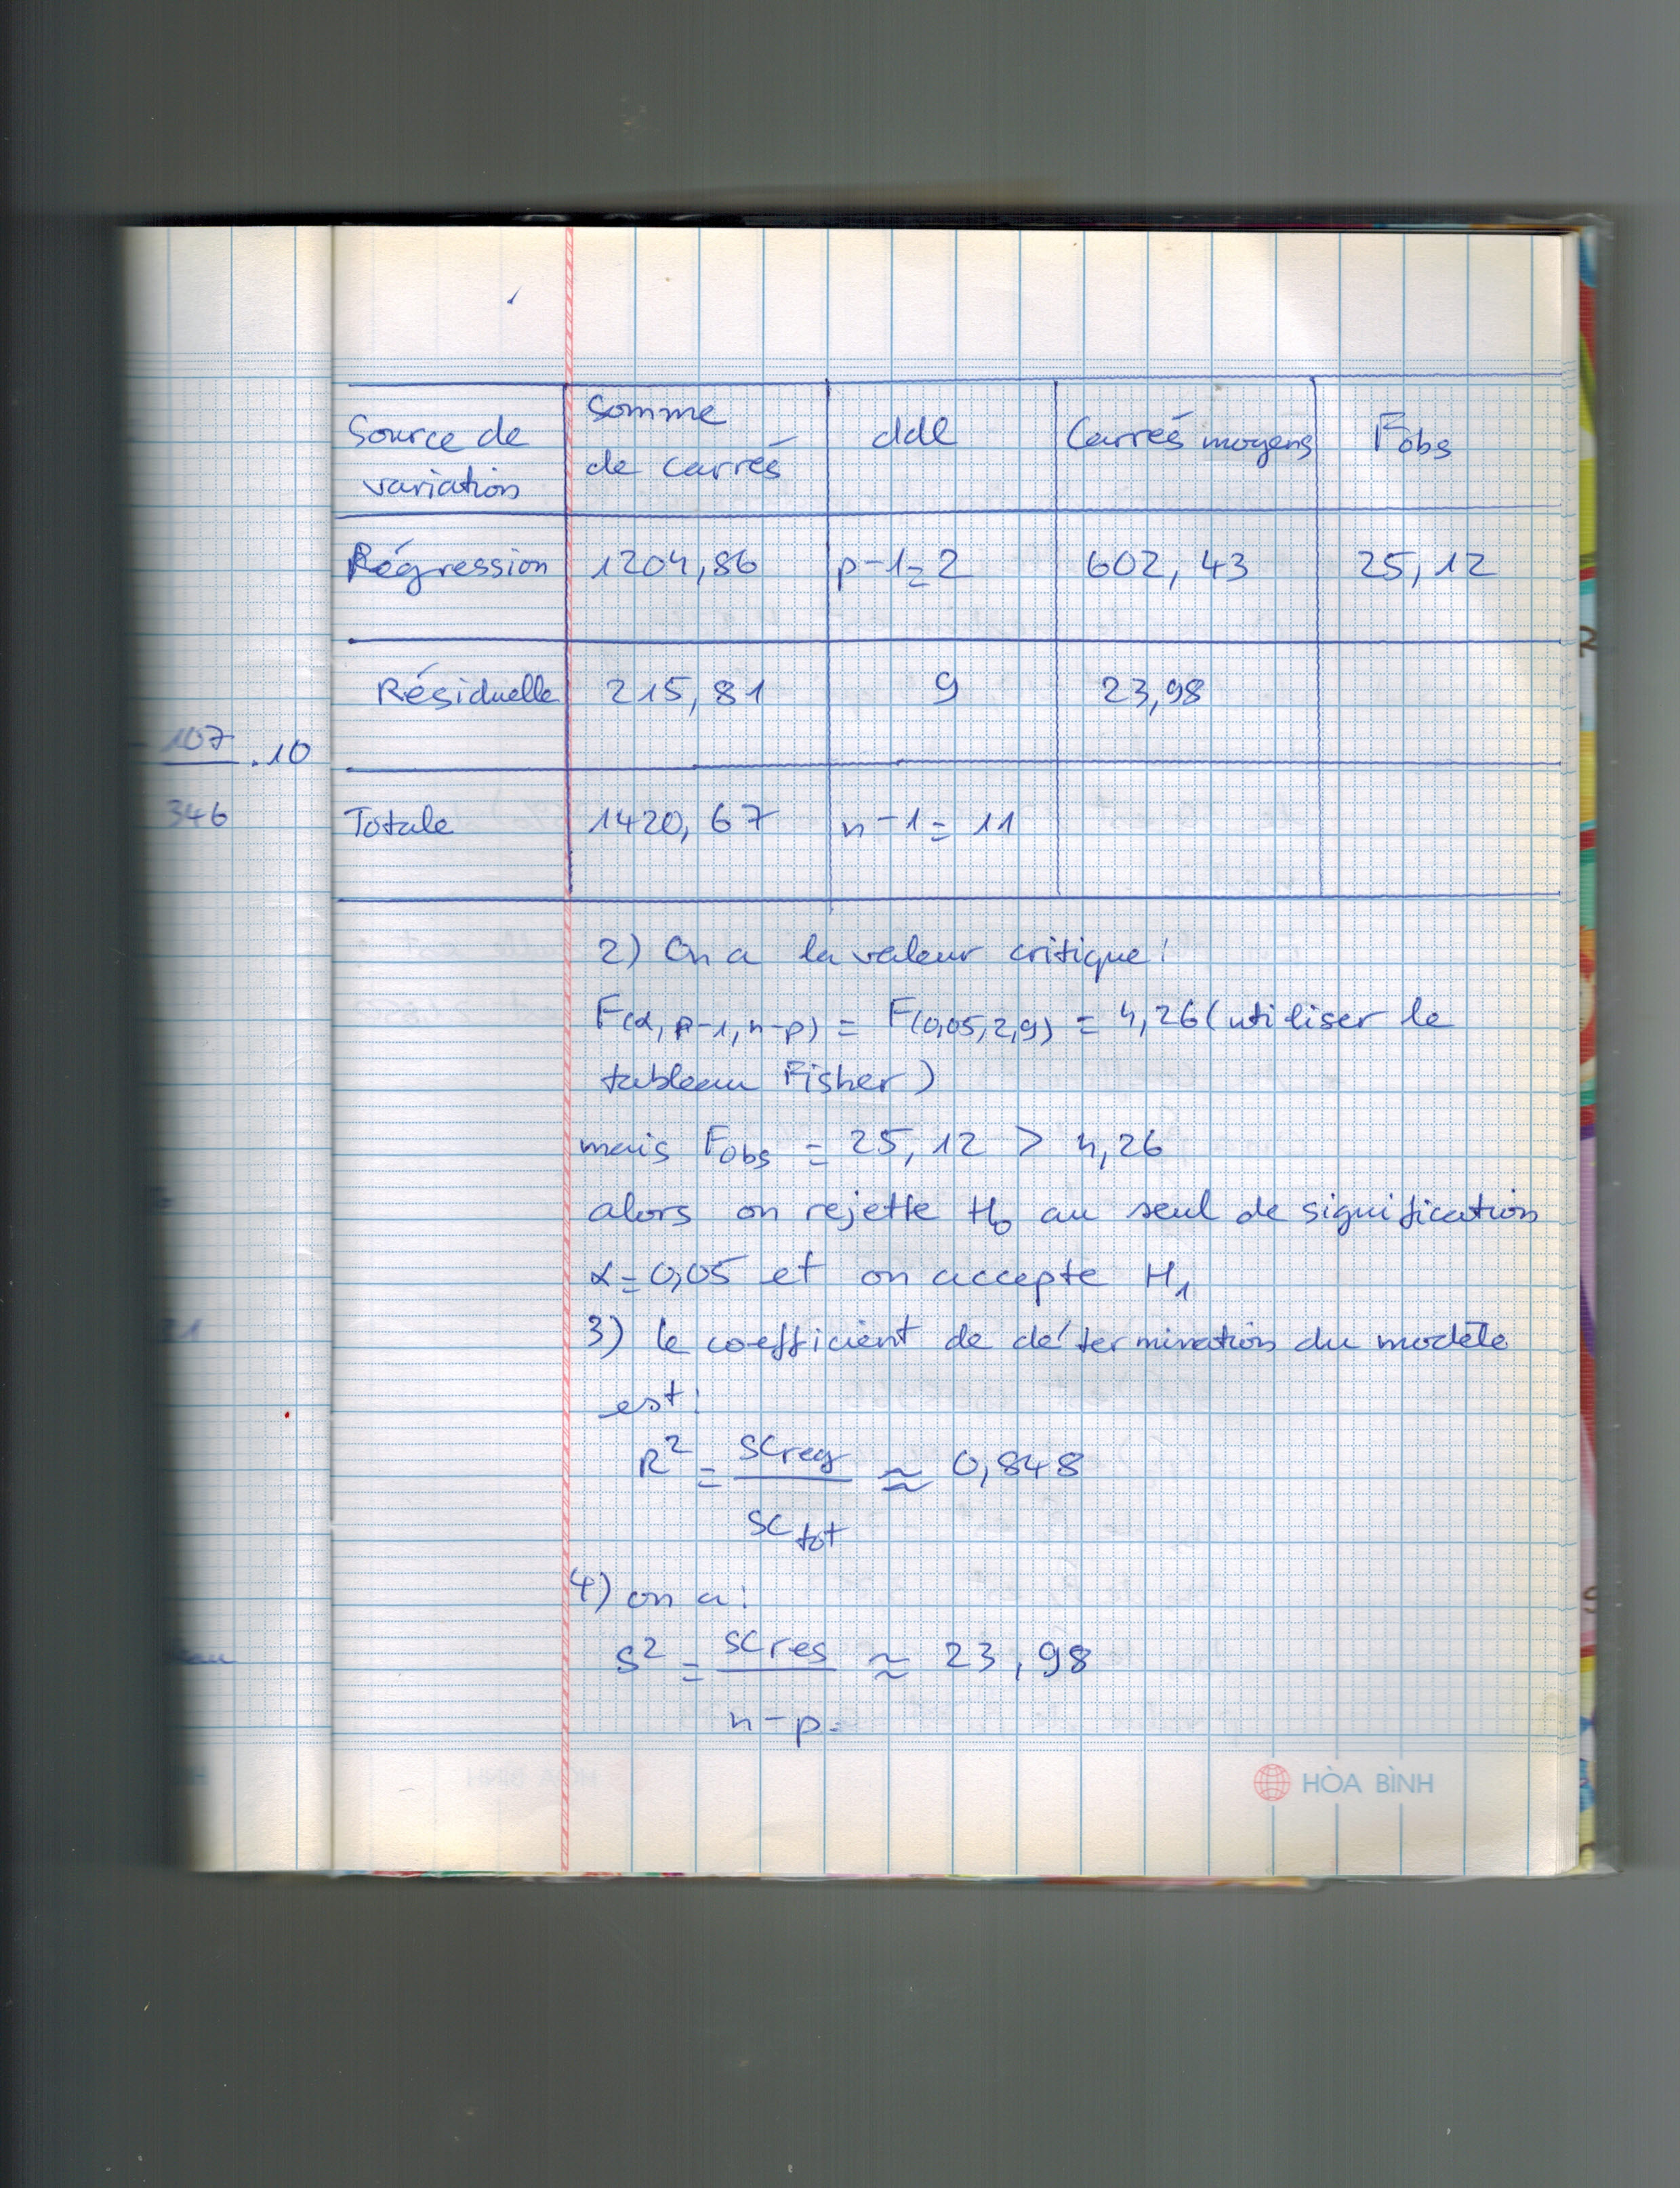 Source de variation | Somme de carrés | ddl | Carrés moyens | Fobs
Régression | 1204,86 | p-1=2 | 602,43 | 25,12
Résiduelle | 215,81 | 9 | 23,98
107 .10
346
Totale | 1420,67 | n-1= 11
2) On a la valeur critique:
F(α, p-1, n-p) = F(0,05,2,9) = 4,26 (utiliser le
tableau Fisher)
mais Fobs = 25,12 > 4,26
alors on rejette H0 au seul de signification
α=0,05 et on accepte H1
3) le coefficient de détermination du modèle
est:
R² = SCreg / SCtot ≈ 0,848
4) on a:
S² = SCres / n-p. ≈ 23,98
HÒA BÌNH